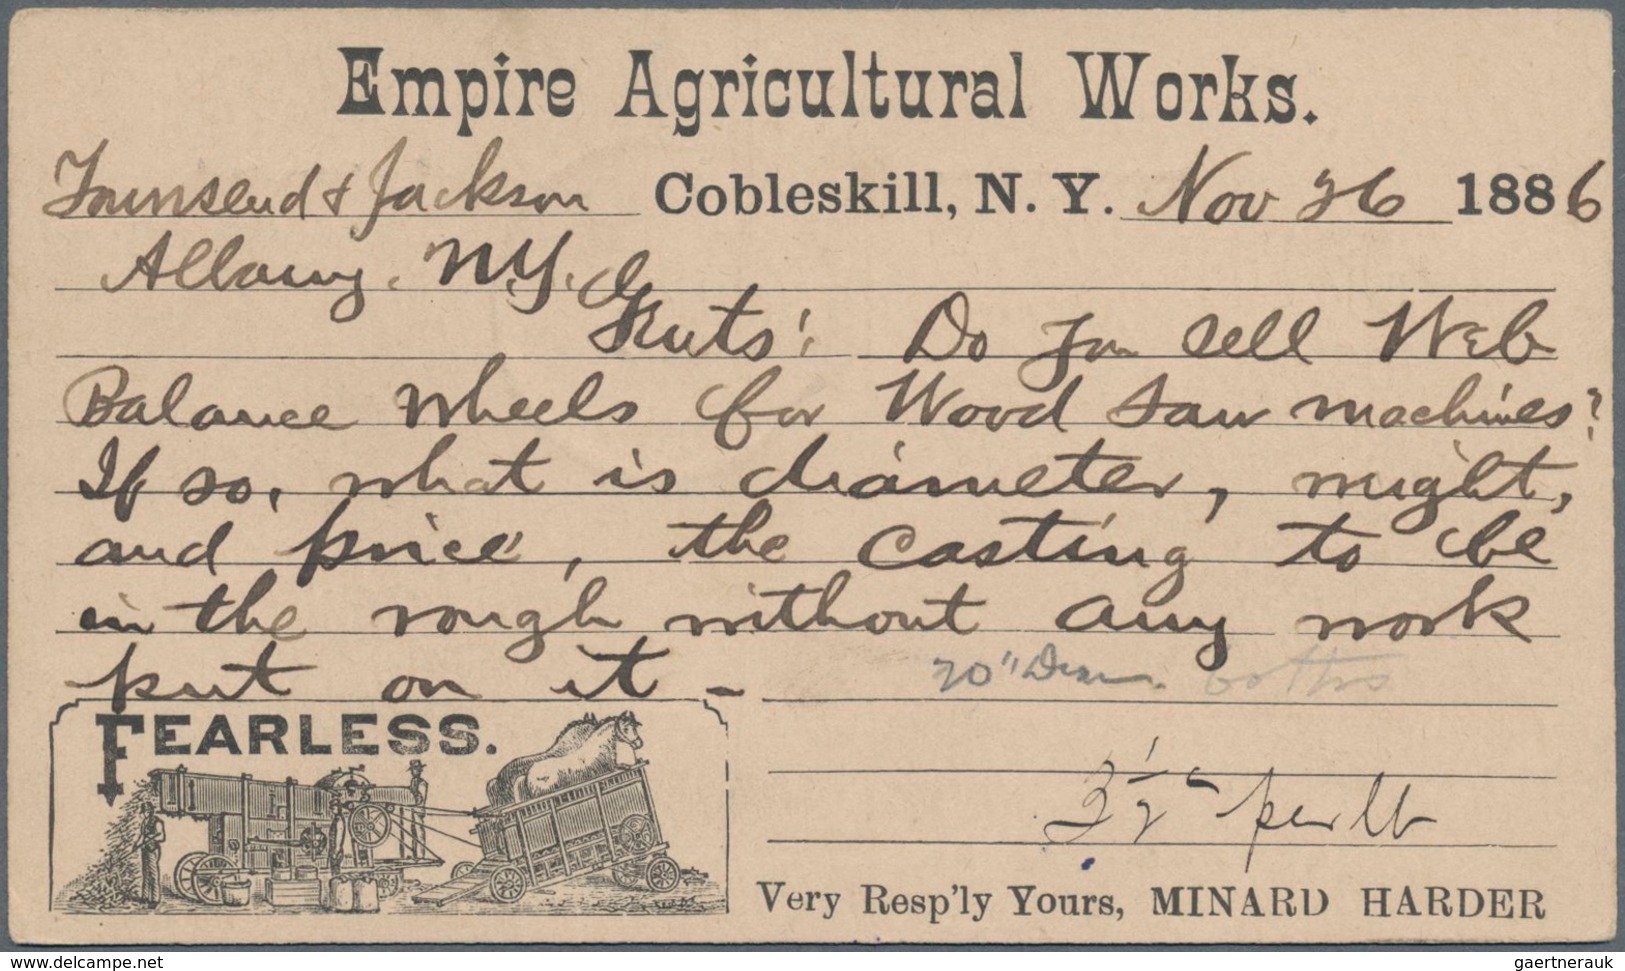 Empire Agricultural Works.
Townsend & Jackson Cobleskill, N. Y. Nov 26 1886
Albany, N.Y.
Gents: Do you sell Web
Balance Wheels for Wood Saw machines?
If so, what is diameter, weight,
and price, the casting to be
in the rough without any work
put on it –
20" Diam.
FEARLESS.
3½ c per lb
Very Resp'ly Yours, MINARD HARDER
www.delcampe.net
gaertnerauk